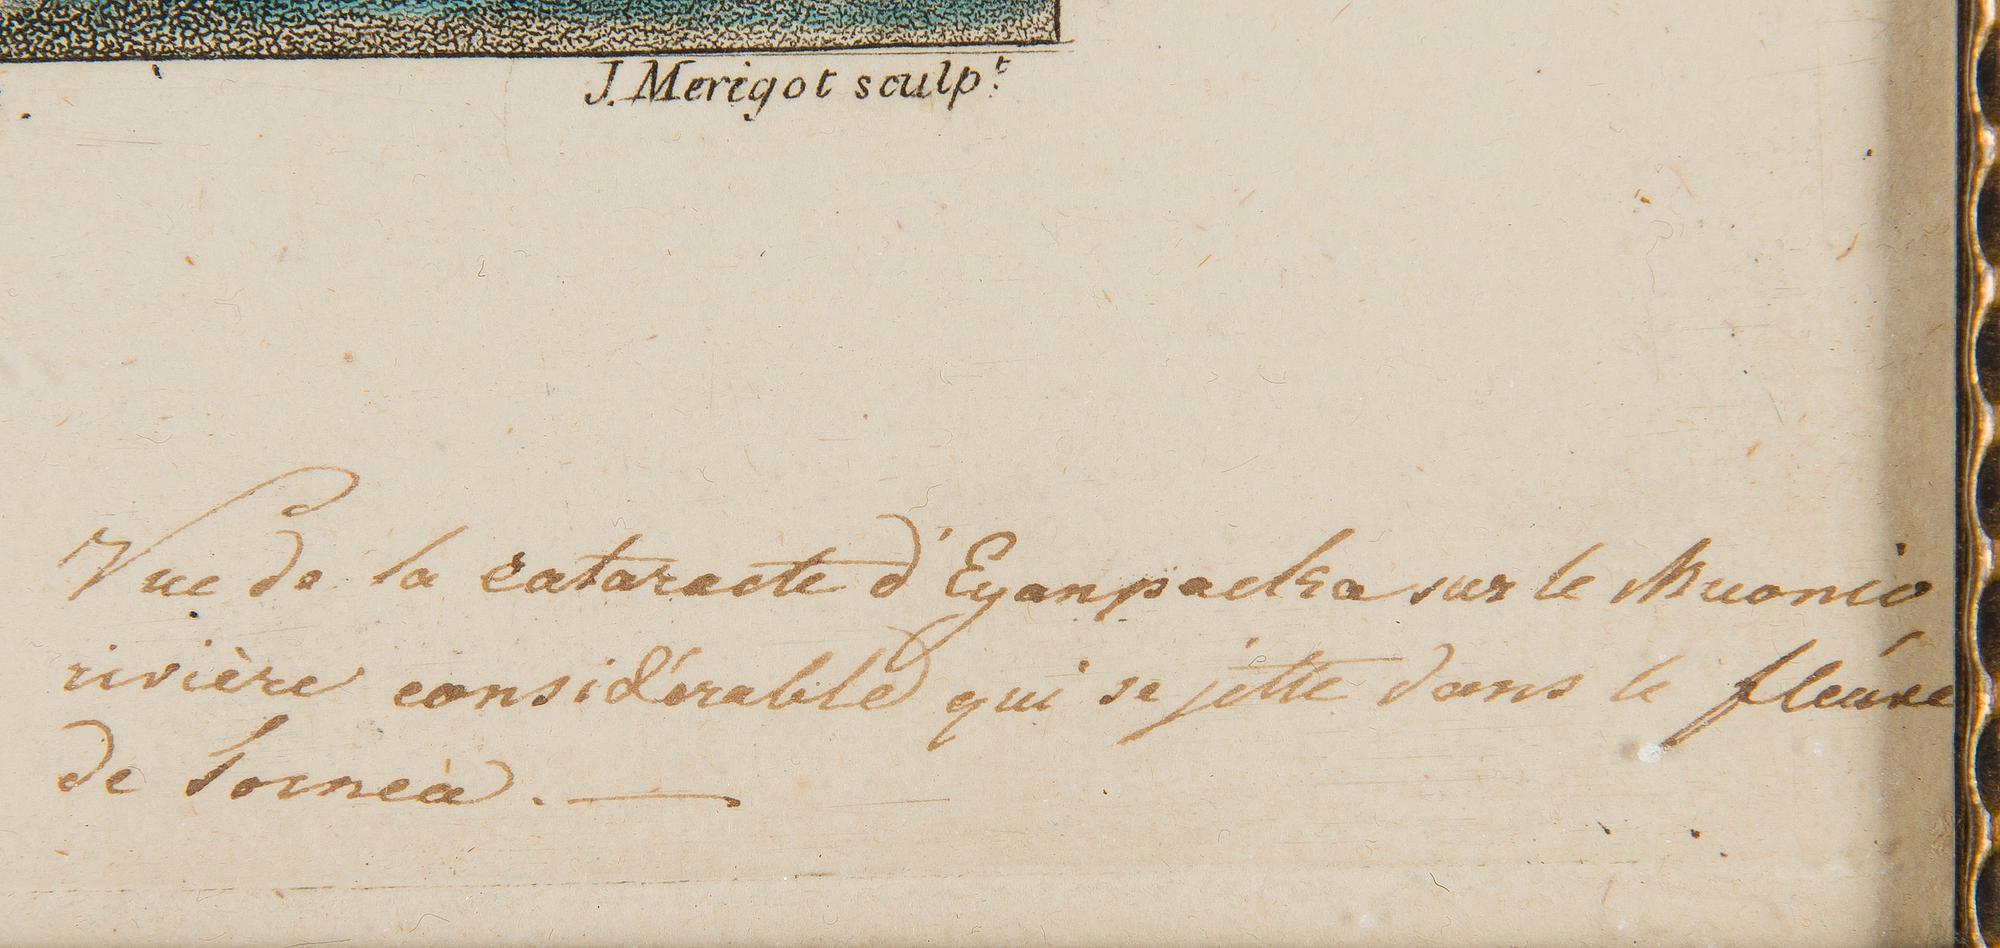 J. Merigot sculpt.
Vue de la cataracte d'Eyanpacka sur le Muonio
rivière considérable qui se jette dans le fleuve
de Torneà. —